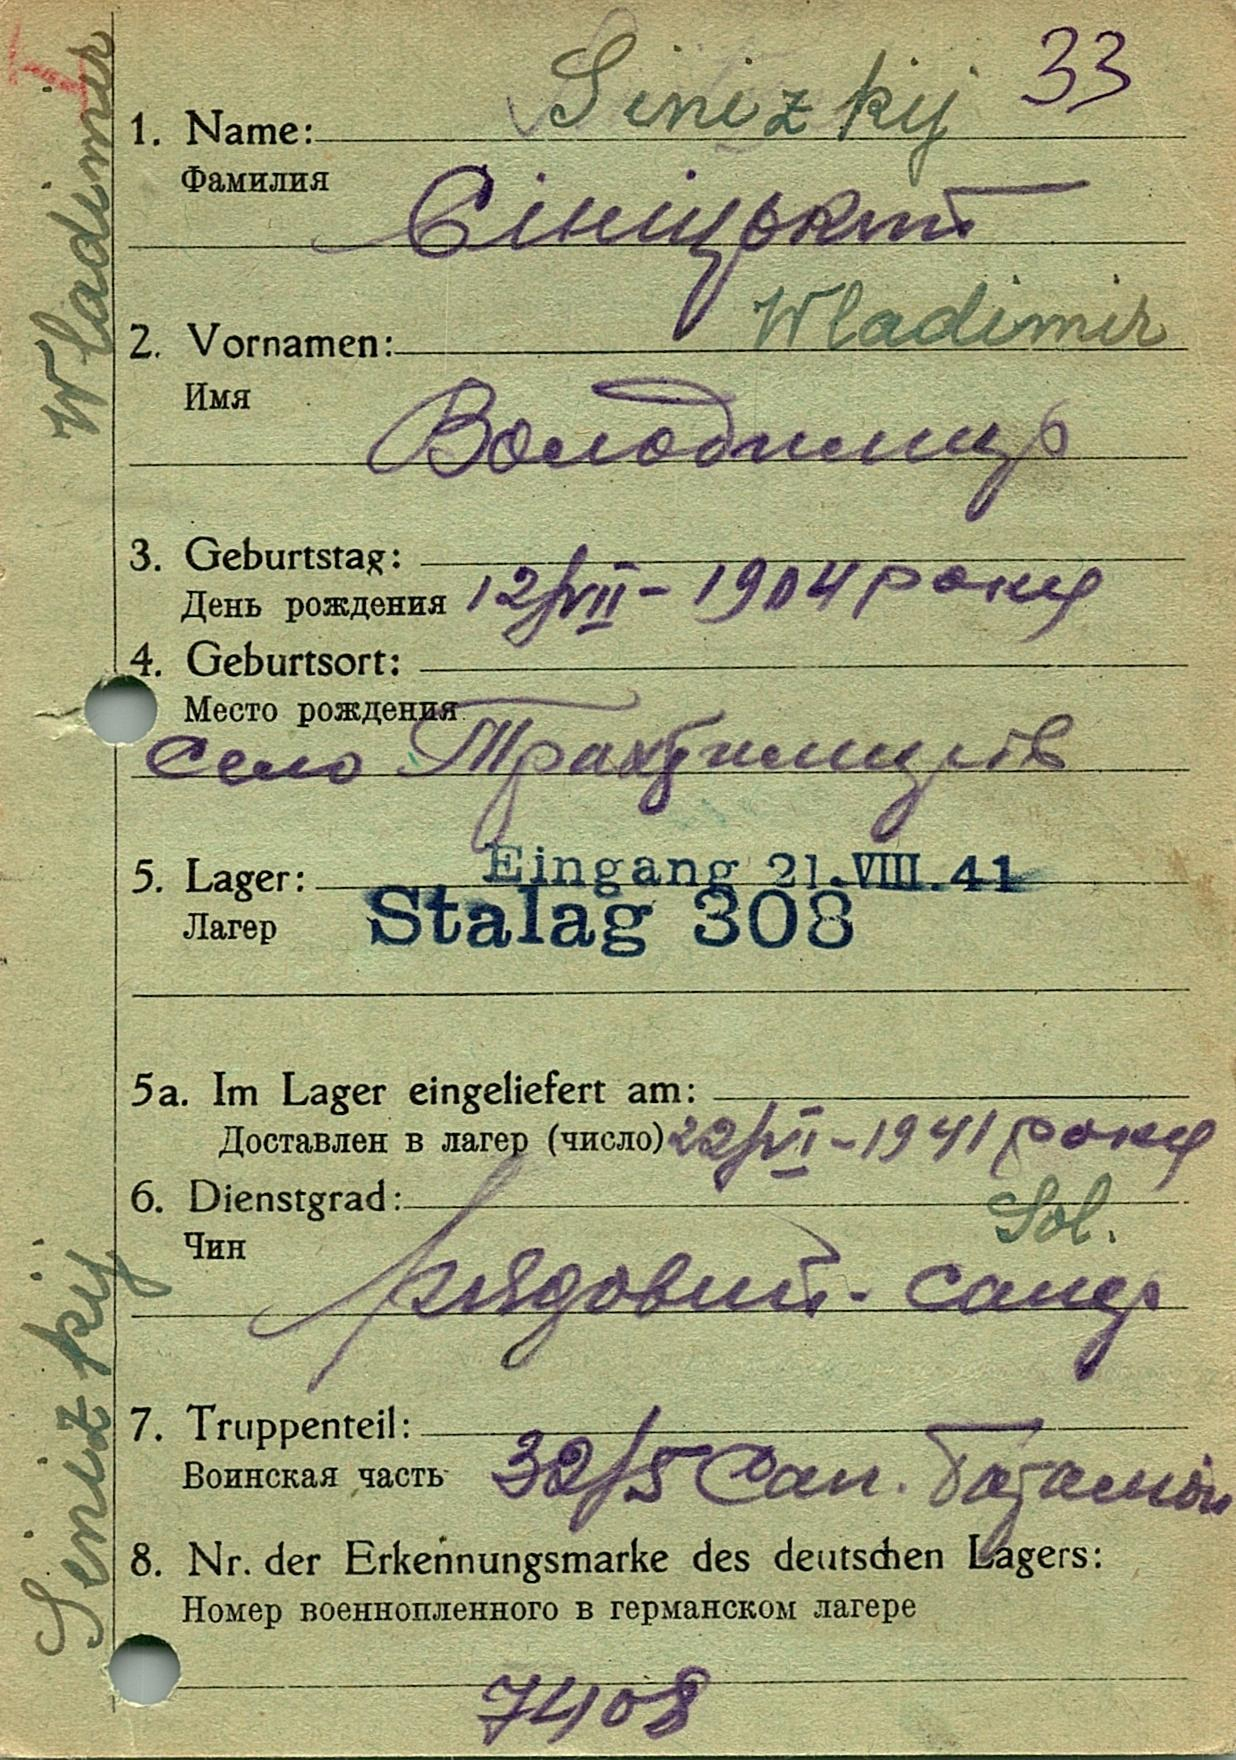 Sinizkij 33
1. Name:
Фамилия
Сініцький
Wladimir
2. Vornamen:
Имя
Володимир
3. Geburtstag:
День рождения 12/VII - 1904 року
4. Geburtsort:
Место рождения
село
Eingang 21.VIII.41
5. Lager: Stalag 308
Лагер
5a. Im Lager eingeliefert am:
Доставлен в лагер (число) 22/VI - 1941 року
6. Dienstgrad: Sol.
Чин
рядовий - сапер
7. Truppenteil:
Воинская часть 32/5 Сап. Баталион
8. Nr. der Erkennungsmarke des deutschen Lagers:
Номер военнопленного в германском лагере
7408
Sinizkij Wladimir